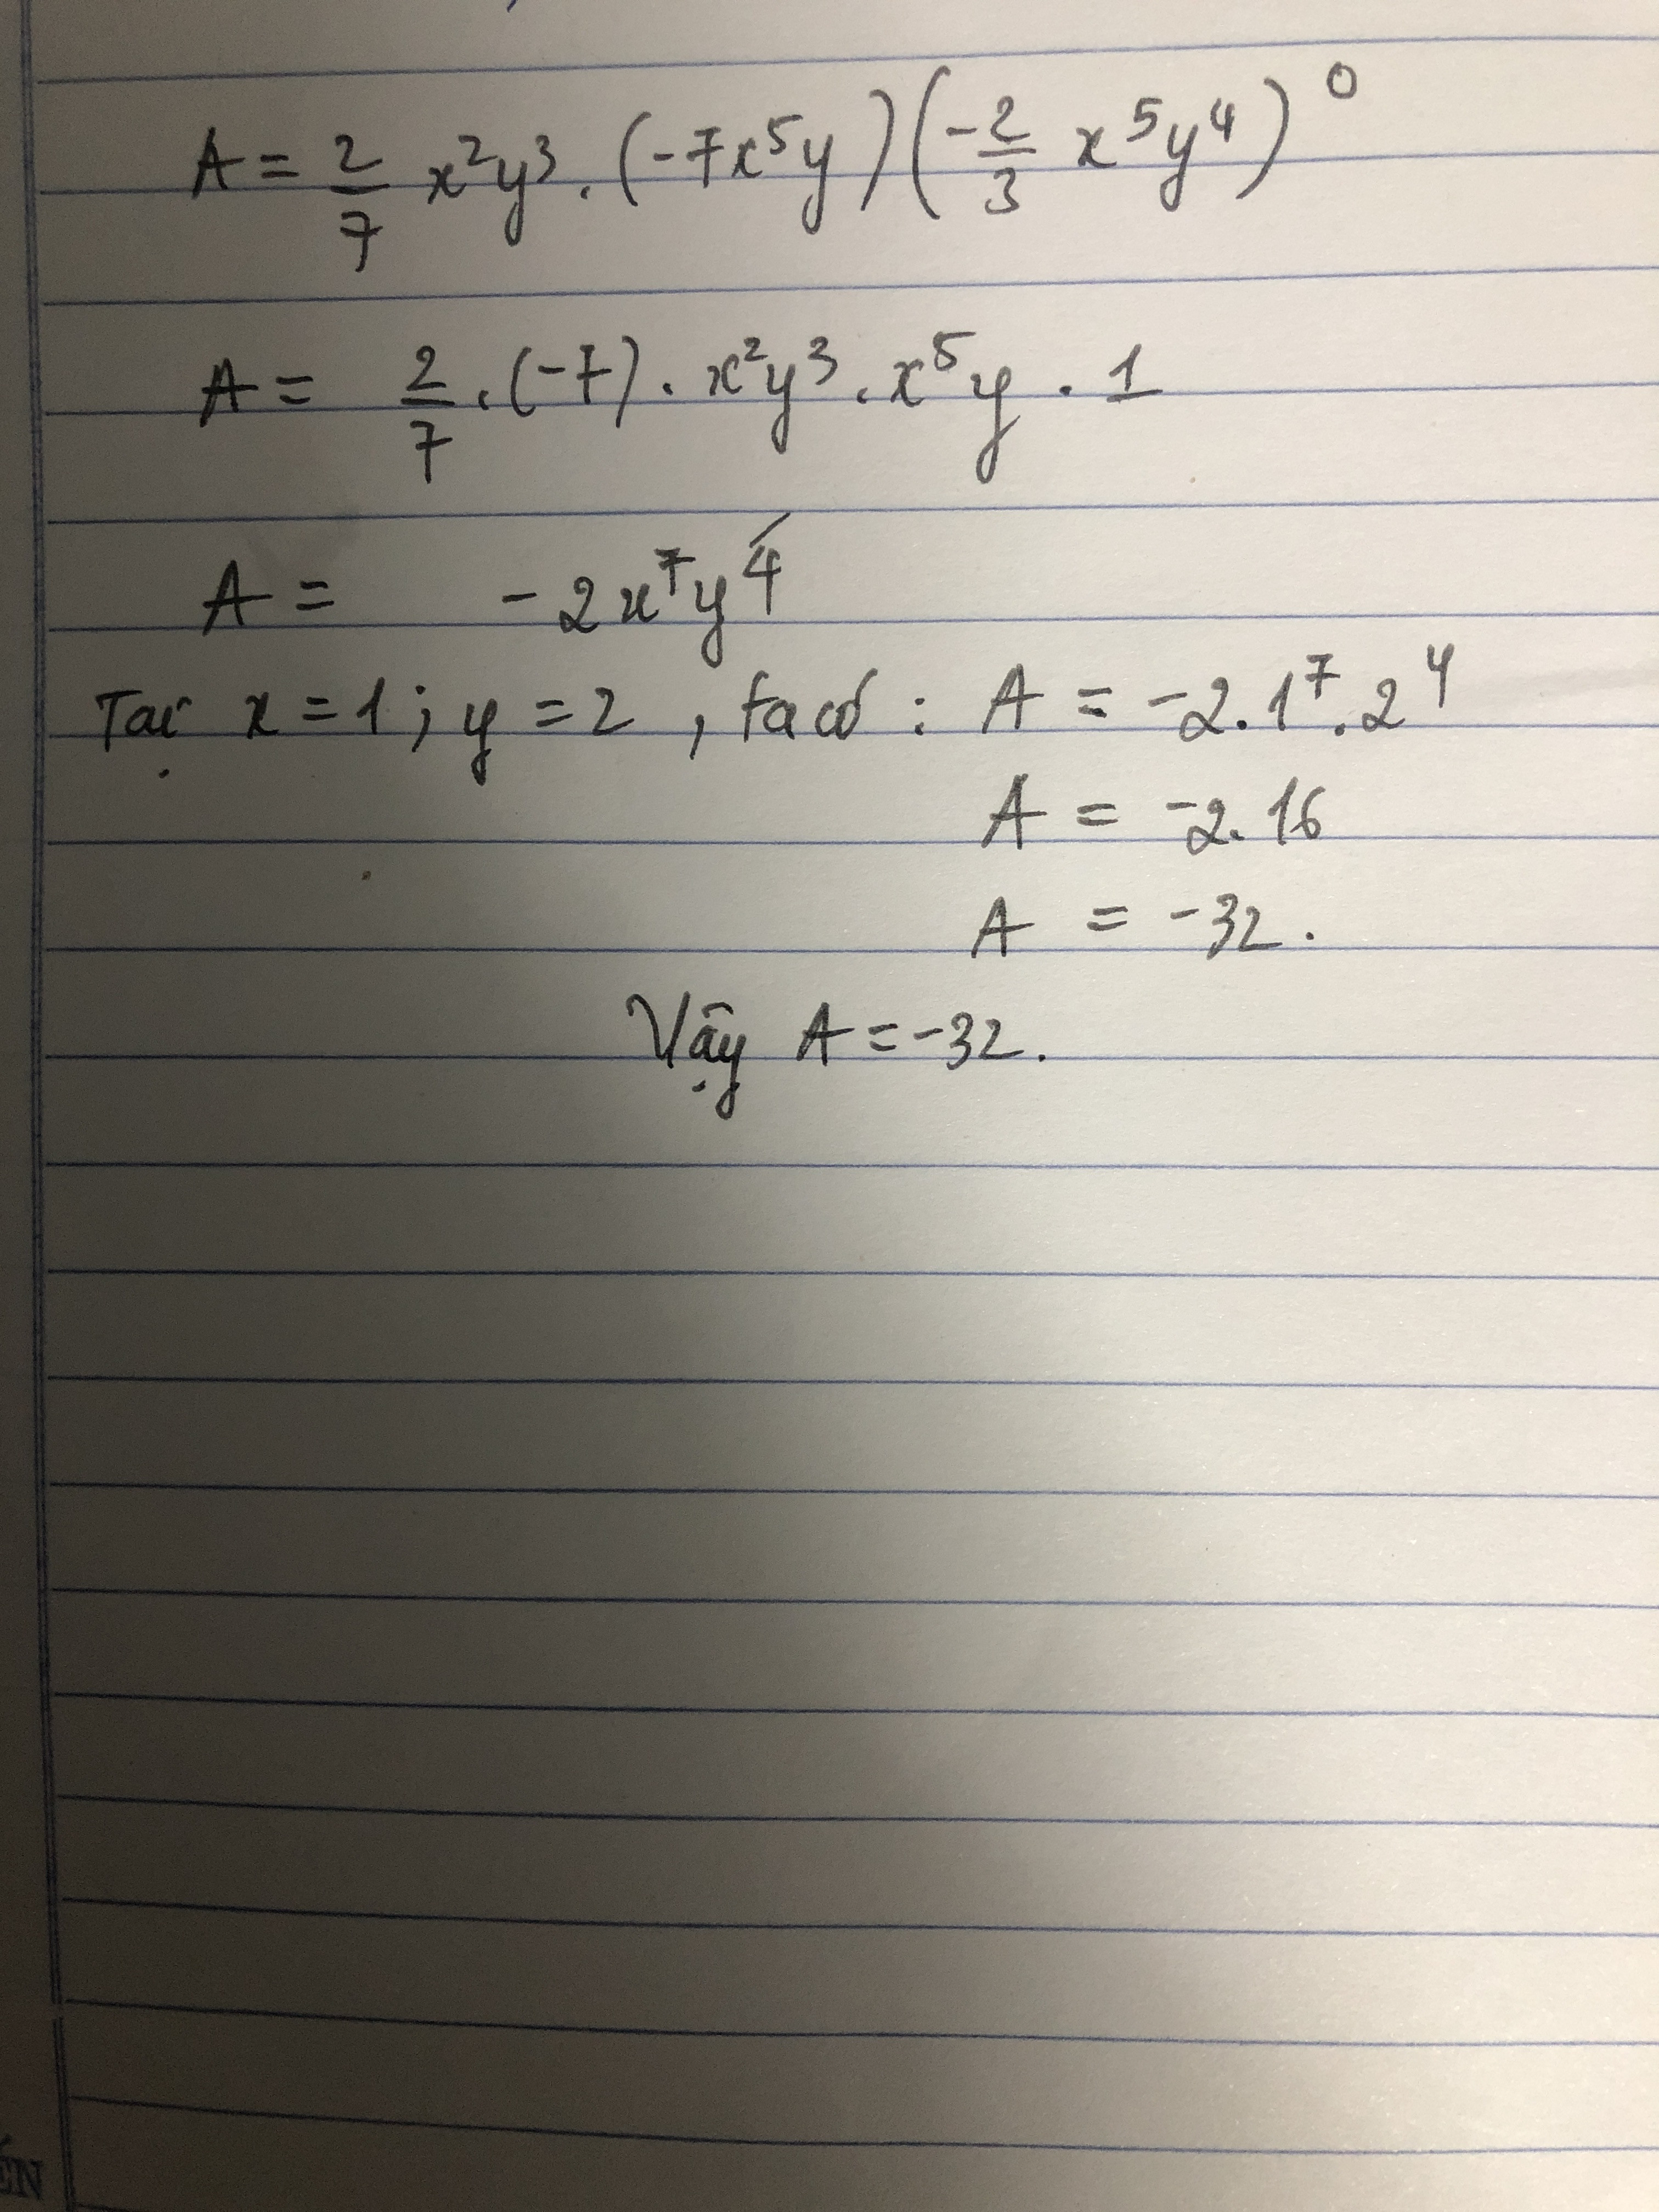 A = 2/7 x²y³ . (-7x⁵y) (-2/3 x⁵y⁴)⁰
A = 2/7 . (-7) . x²y³ . x⁵y . 1
A = -2x⁷y⁴
Tại x = 1 ; y = 2 , ta có : A = -2. 1⁷ . 2⁴
A = -2. 16
A = -32.
Vậy A = -32.